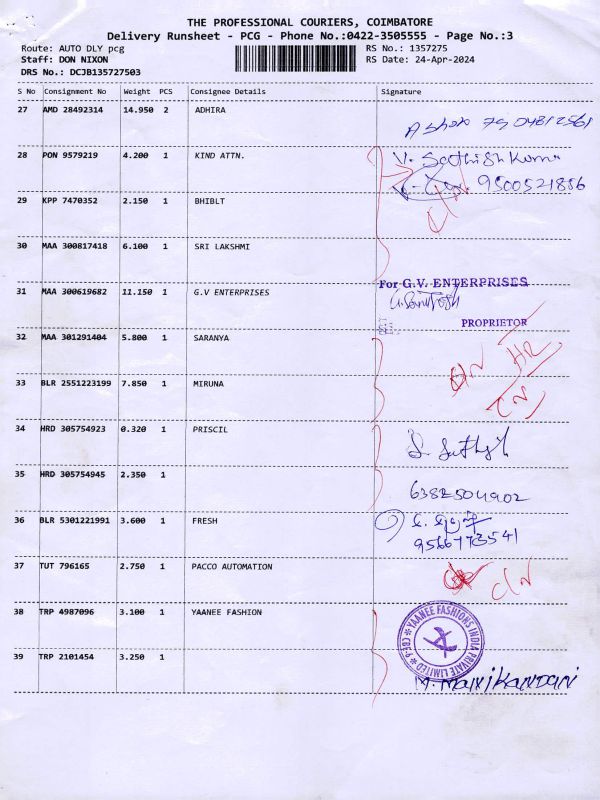 THE PROFESSIONAL COURIERS, COIMBATORE
Delivery Runsheet - PCG - Phone No.:0422-3505555 - Page No.:3
Route: AUTO DLY pcg RS No.: 1357275
Staff: DON NIXON RS Date: 24-Apr-2024
DRS No.: DCJB135727503
S No Consignment No Weight PCS Consignee Details Signature
27 AMD 28492314 14.950 2 ADHIRA
28 PON 9579219 4.200 1 KIND ATTN. V. Sathish Kumar
9500521886
29 KPP 7470352 2.150 1 BHIBLT
30 MAA 300817418 6.100 1 SRI LAKSHMI
31 MAA 300619682 11.150 1 G.V ENTERPRISES For G.V. ENTERPRISES
PROPRIETOR
32 MAA 301291404 5.800 1 SARANYA
33 BLR 2551223199 7.850 1 MIRUNA
34 HRD 305754923 0.320 1 PRISCIL
35 HRD 305754945 2.350 1 6382504902
36 BLR 5301221991 3.600 1 FRESH
9566773541
37 TUT 796165 2.750 1 PACCO AUTOMATION
38 TRP 4987096 3.100 1 YAANEE FASHION YAANEE FASHIONS INDIA PRIVATE LIMITED
39 TRP 2101454 3.250 1 M. Manikandan